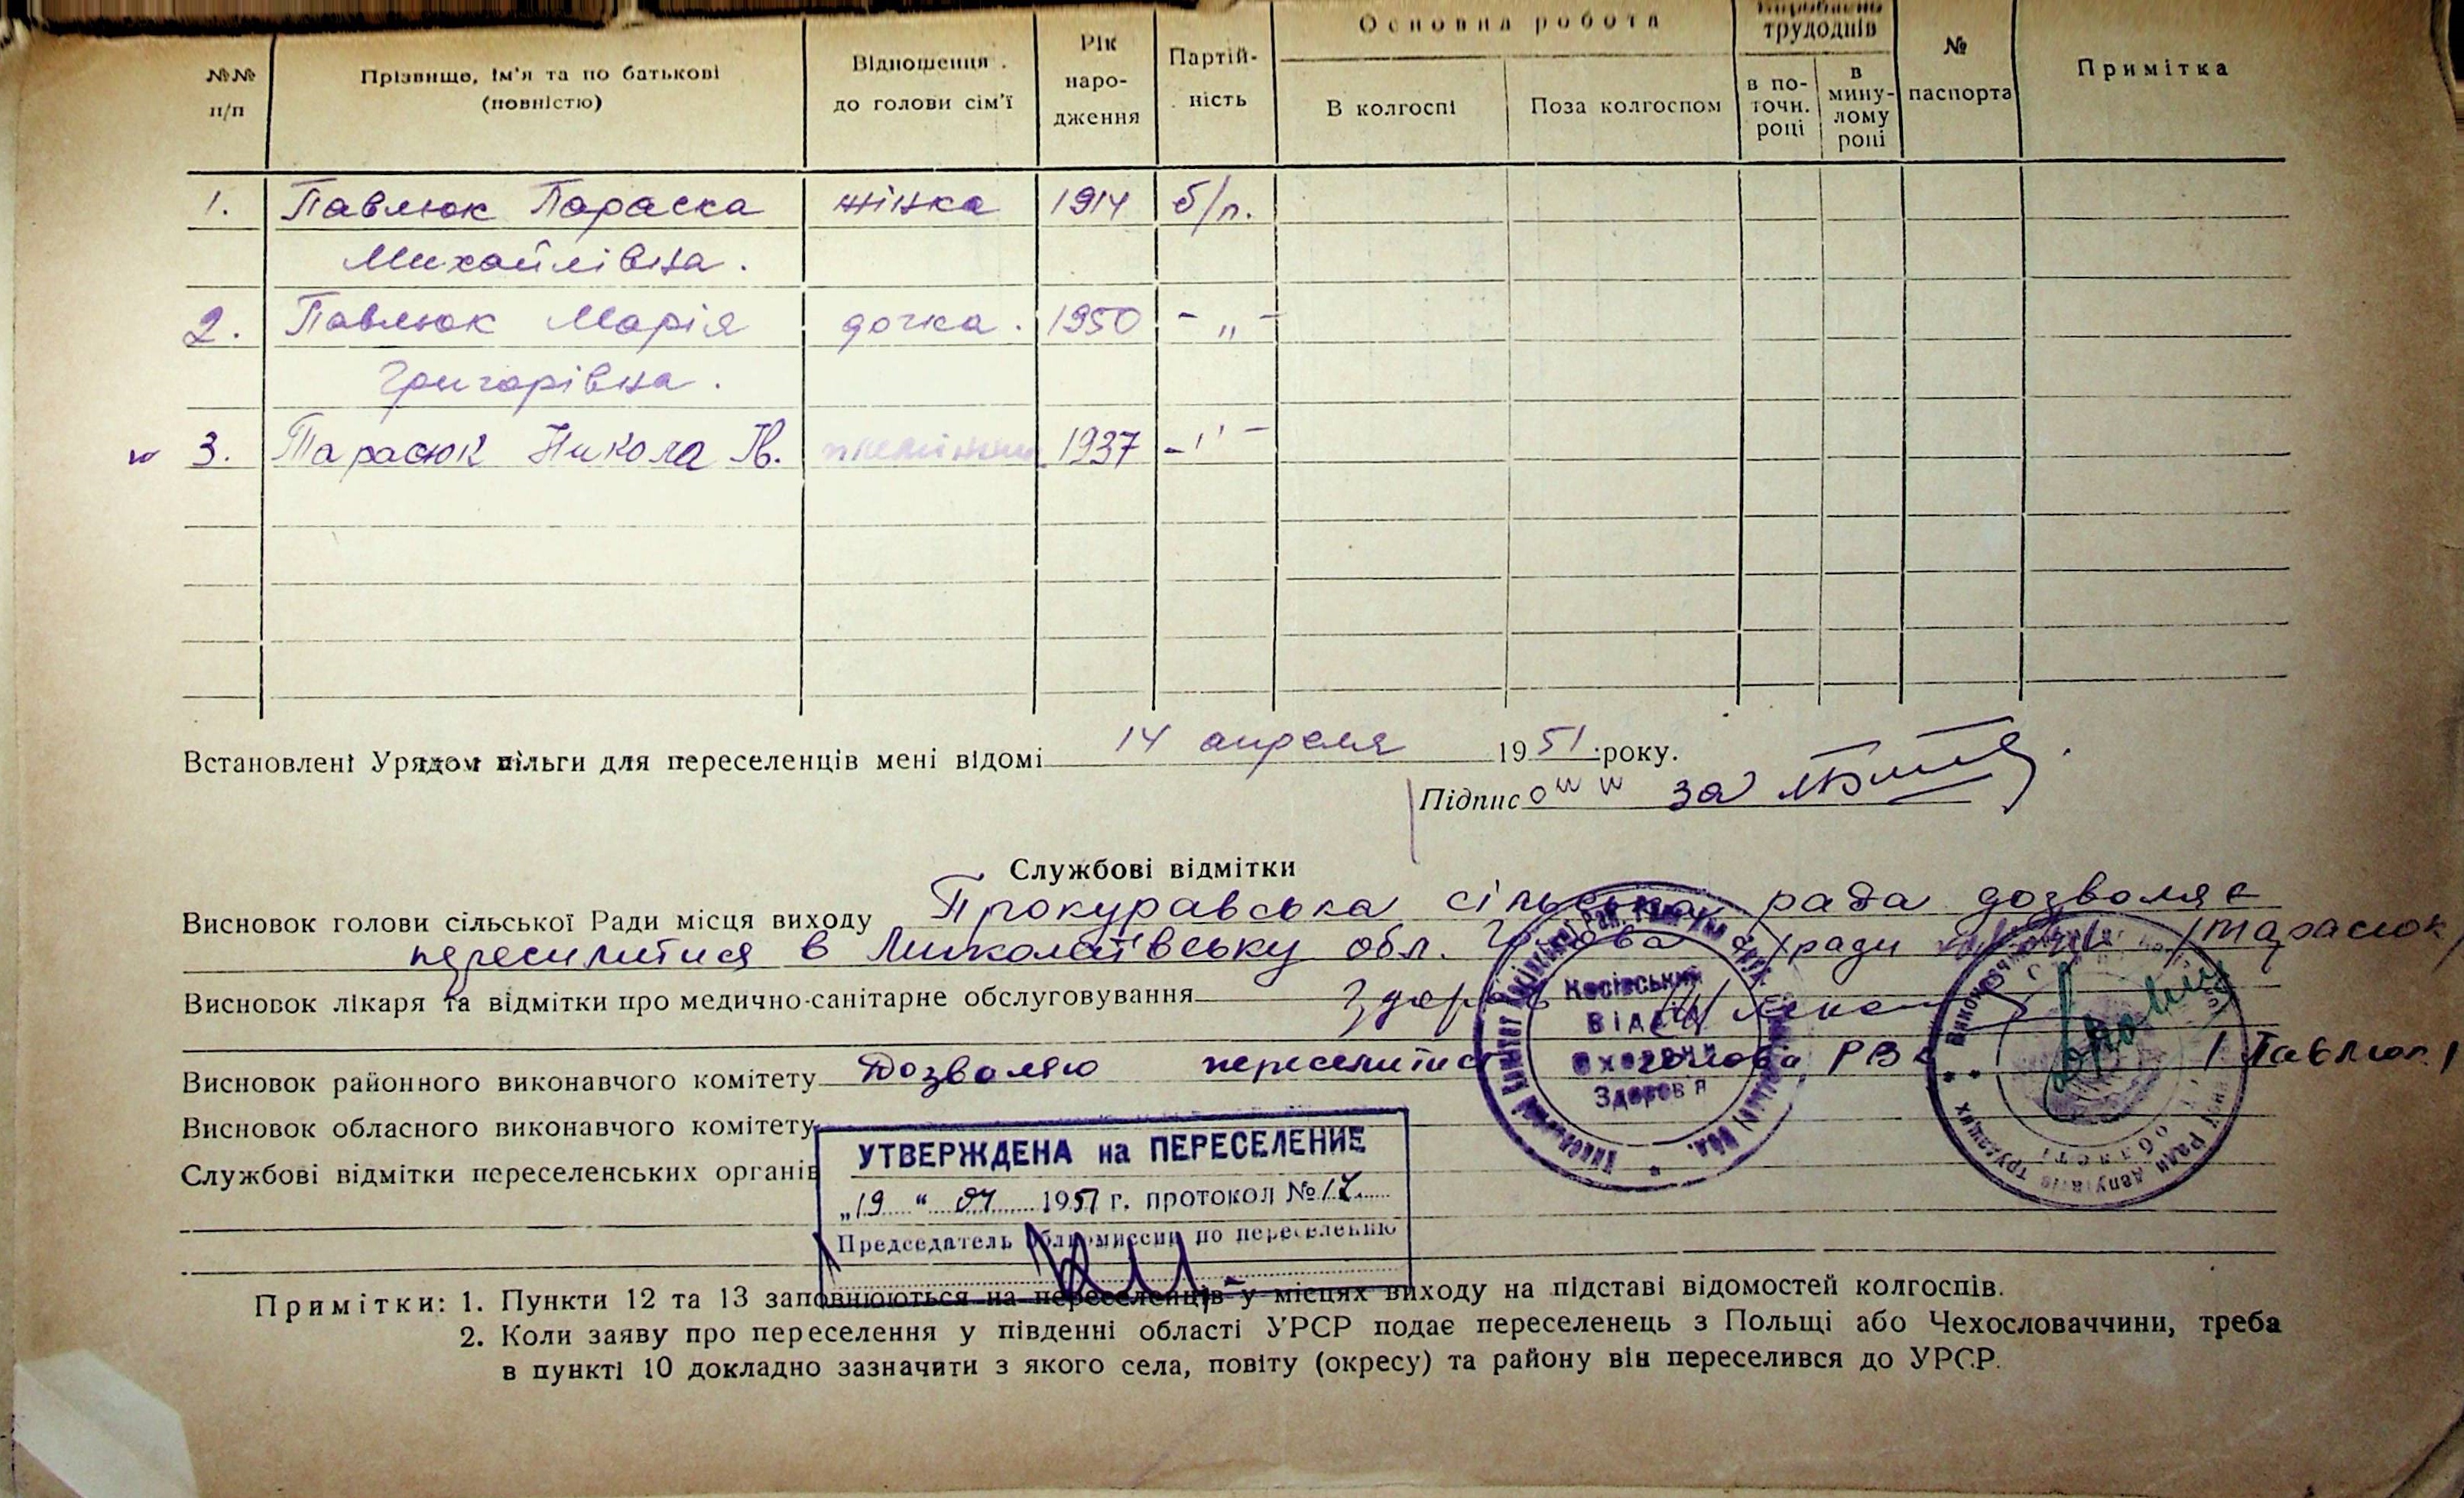 №№ п/п Прізвище, ім'я та по батькові (повністю) Відношення до голови сім'ї Рік народження Партійність Основна робота В колгоспі Поза колгоспом трудоднів в поточн. році в минулому році № паспорта Примітка
1. Павлюк Параска жінка 1914 б/п.
Михайлівна.
2. Павлюк Марія дочка. 1950 - „ -
Григорівна.
3. Тарасюк Никола 1937 - '' -
Встановлені Урядом пільги для переселенців мені відомі 14 апреля 1951 року.
Підпис за
Службові відмітки
Висновок голови сільської Ради місця виходу Прокуравська сільська рада дозволяє
переселитися в Миколаївську обл. Голова с/ради /Тарасюк/
Висновок лікаря та відмітки про медично-санітарне обслуговування
Висновок районного виконавчого комітету Дозволяю переселитися голова РВК /Павлюк/
Висновок обласного виконавчого комітету
Службові відмітки переселенських органів
УТВЕРЖДЕНА на ПЕРЕСЕЛЕНИЕ
„19“ 04 1951 г. протокол № 17
Председатель облкомиссии по переселению
Косівський
Відділ
Охорони
Здоров'я
Примітки: 1. Пункти 12 та 13 заповнюються на переселенців у місцях виходу на підставі відомостей колгоспів.
2. Коли заяву про переселення у південні області УРСР подає переселенець з Польщі або Чехословаччини, треба
в пункті 10 докладно зазначити з якого села, повіту (округу) та району він переселився до УРСР.